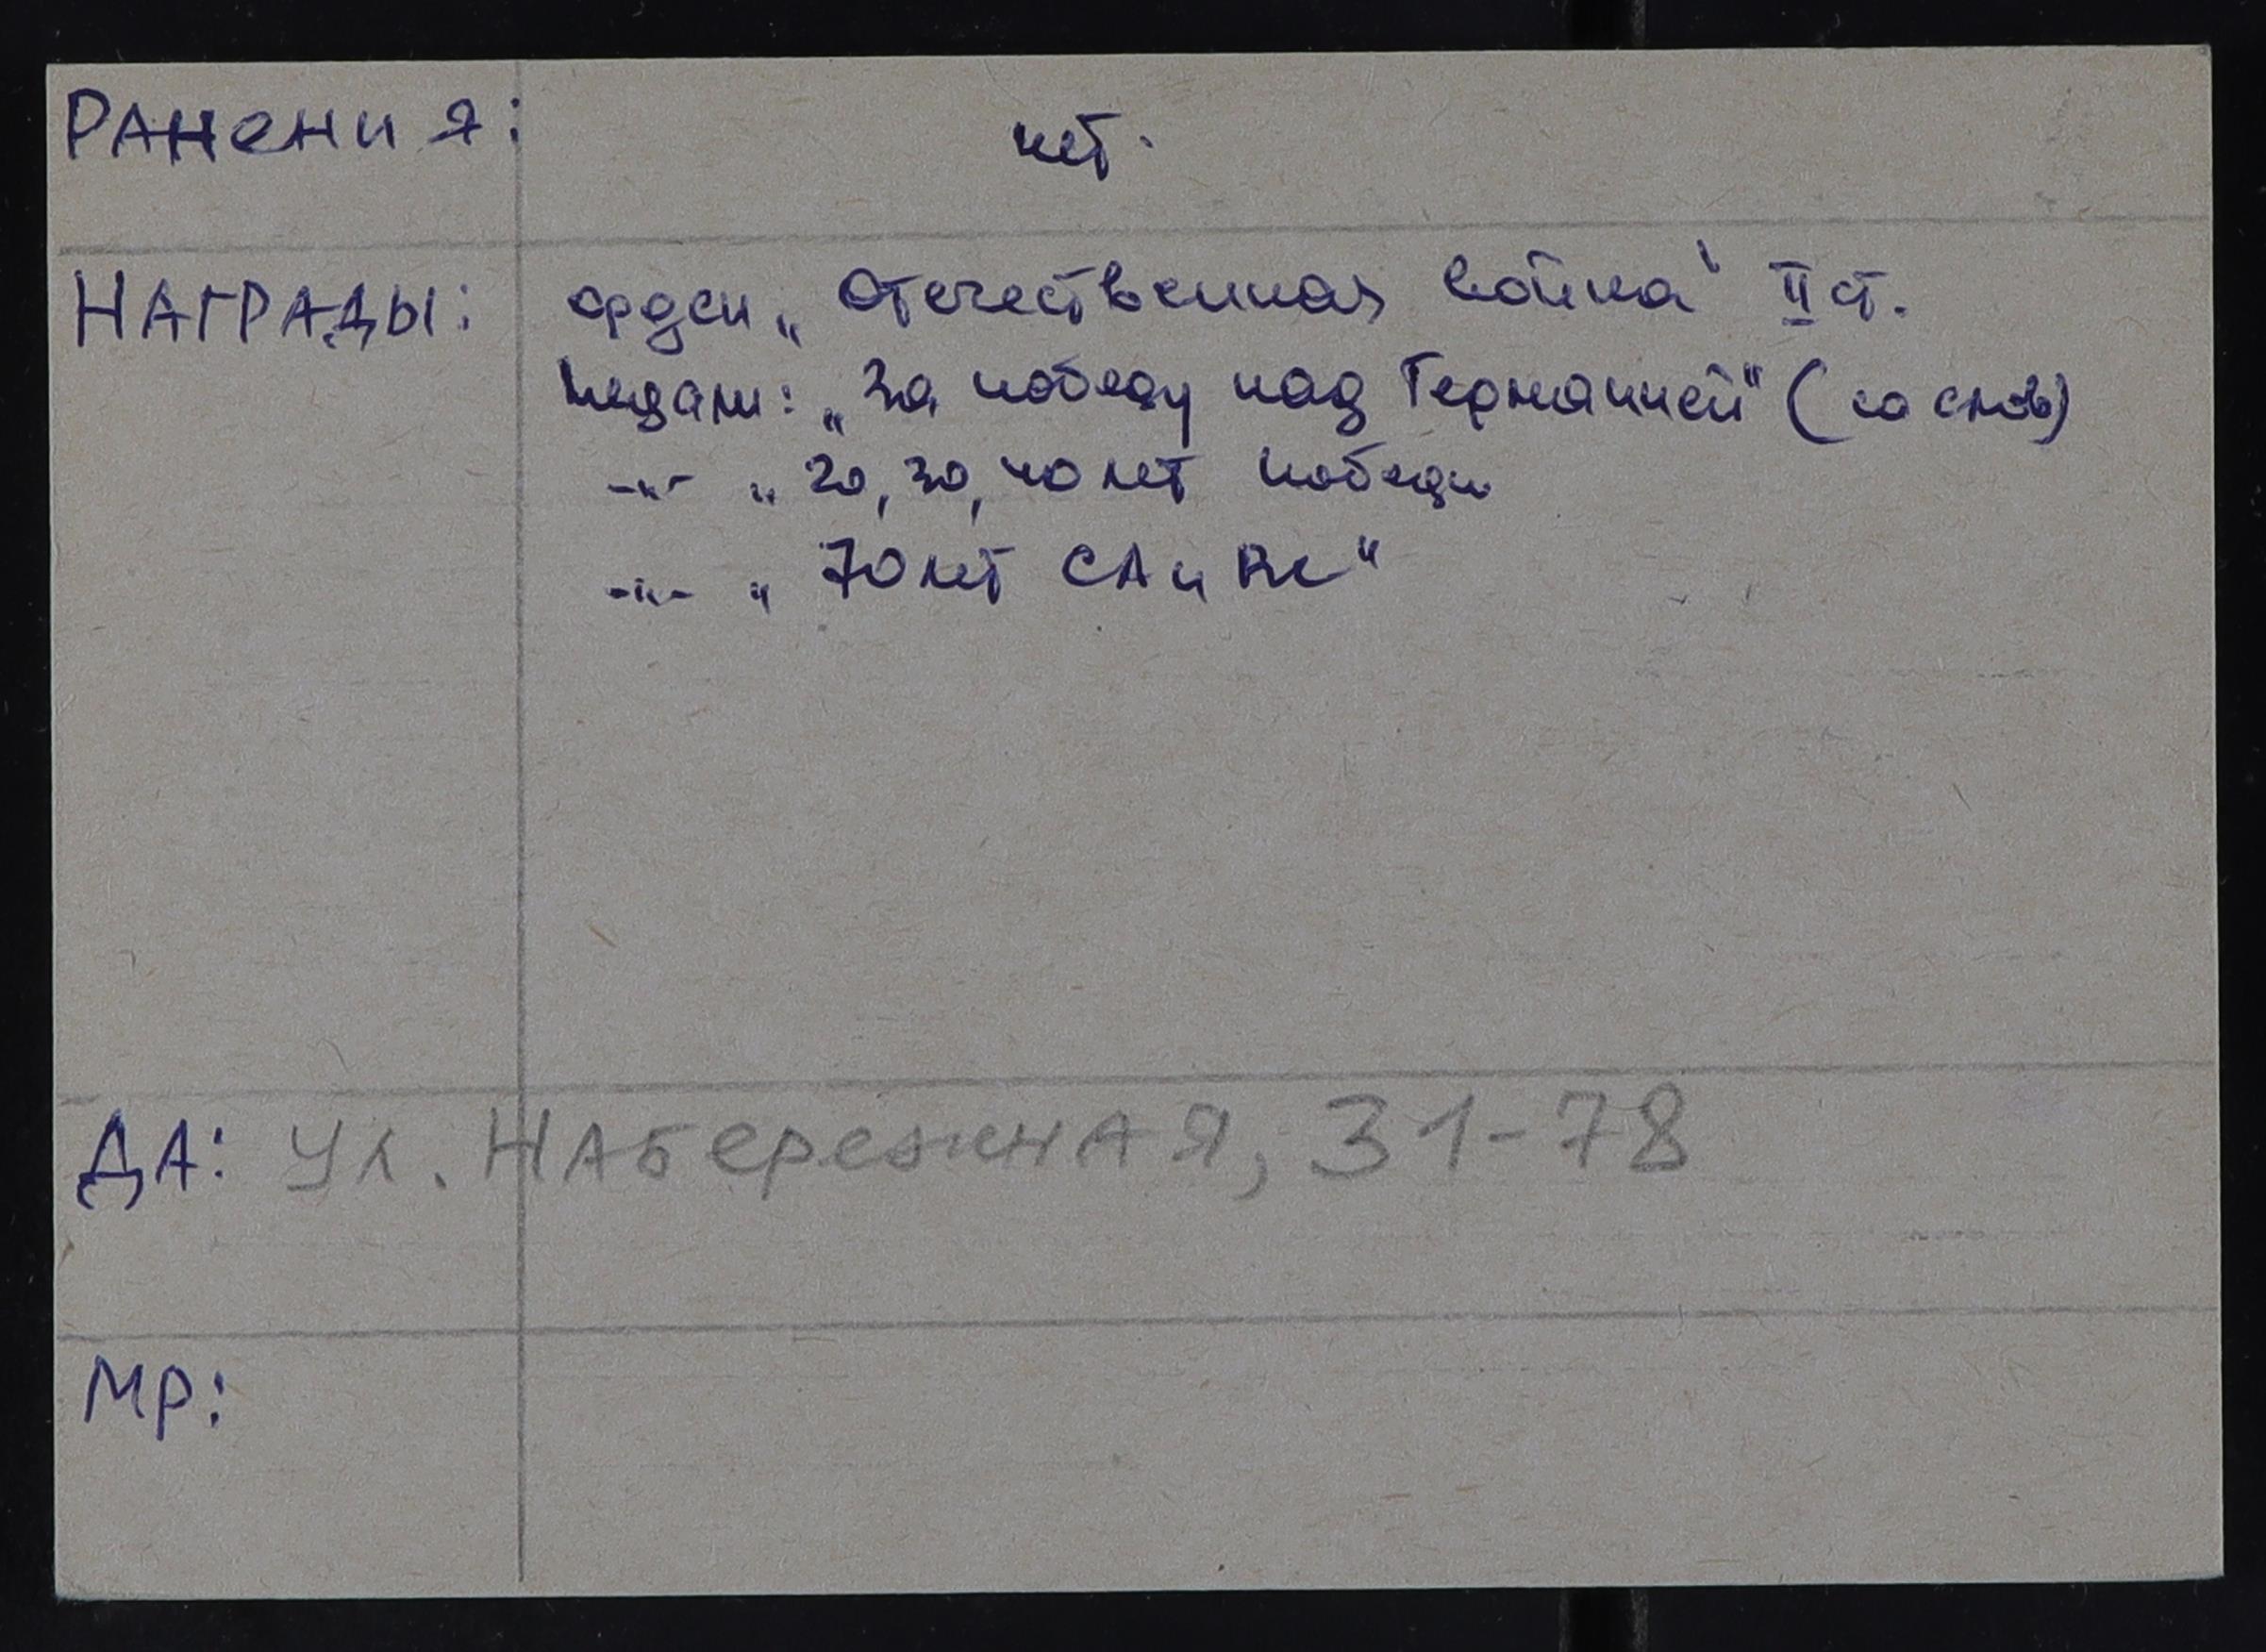 РАНЕНИЯ: нет.
НАГРАДЫ: орден „Отечественная война" II ст.
Медали: „За победу над Германией" (со слов)
-"- „20, 30, 40 лет победы
-"- „70 лет СА и ВС"
ДА: ул. НАБЕРЕЖНАЯ, 31-78
МР: